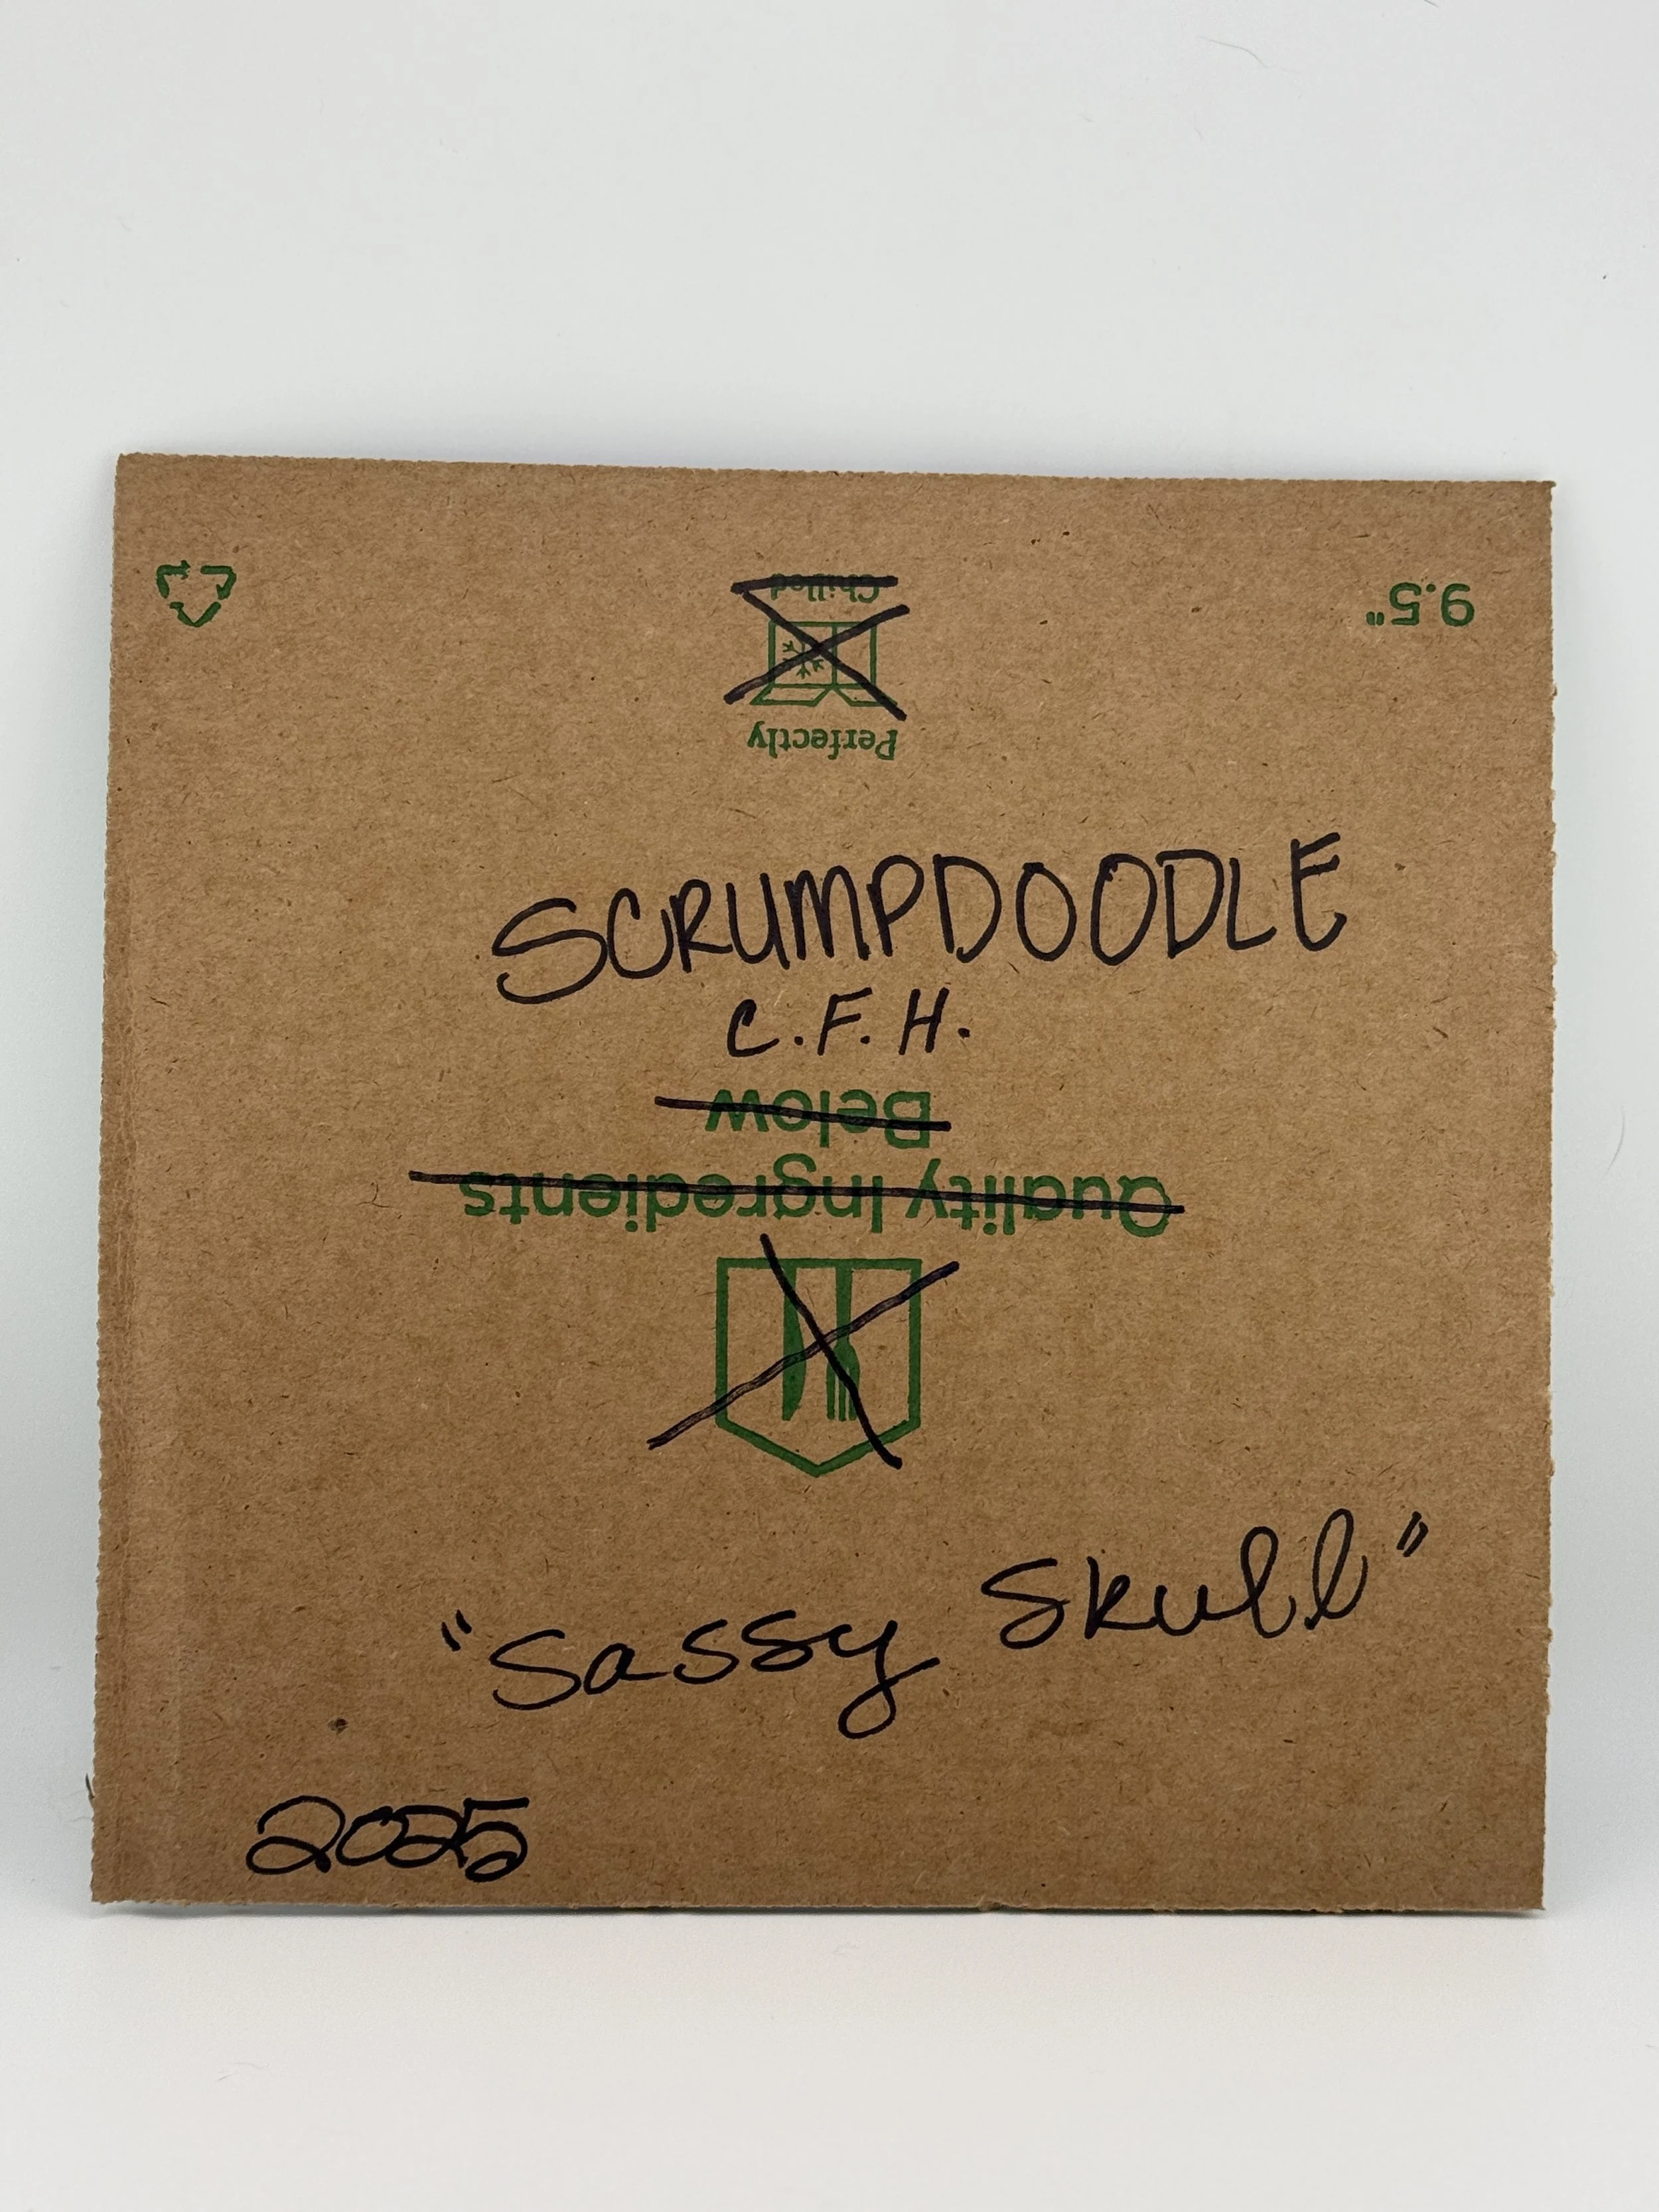 Chilled
9.5"
Perfectly
SCRUMPDOODLE
C.F.H.
Below
Quality Ingredients
"Sassy Skull"
2025